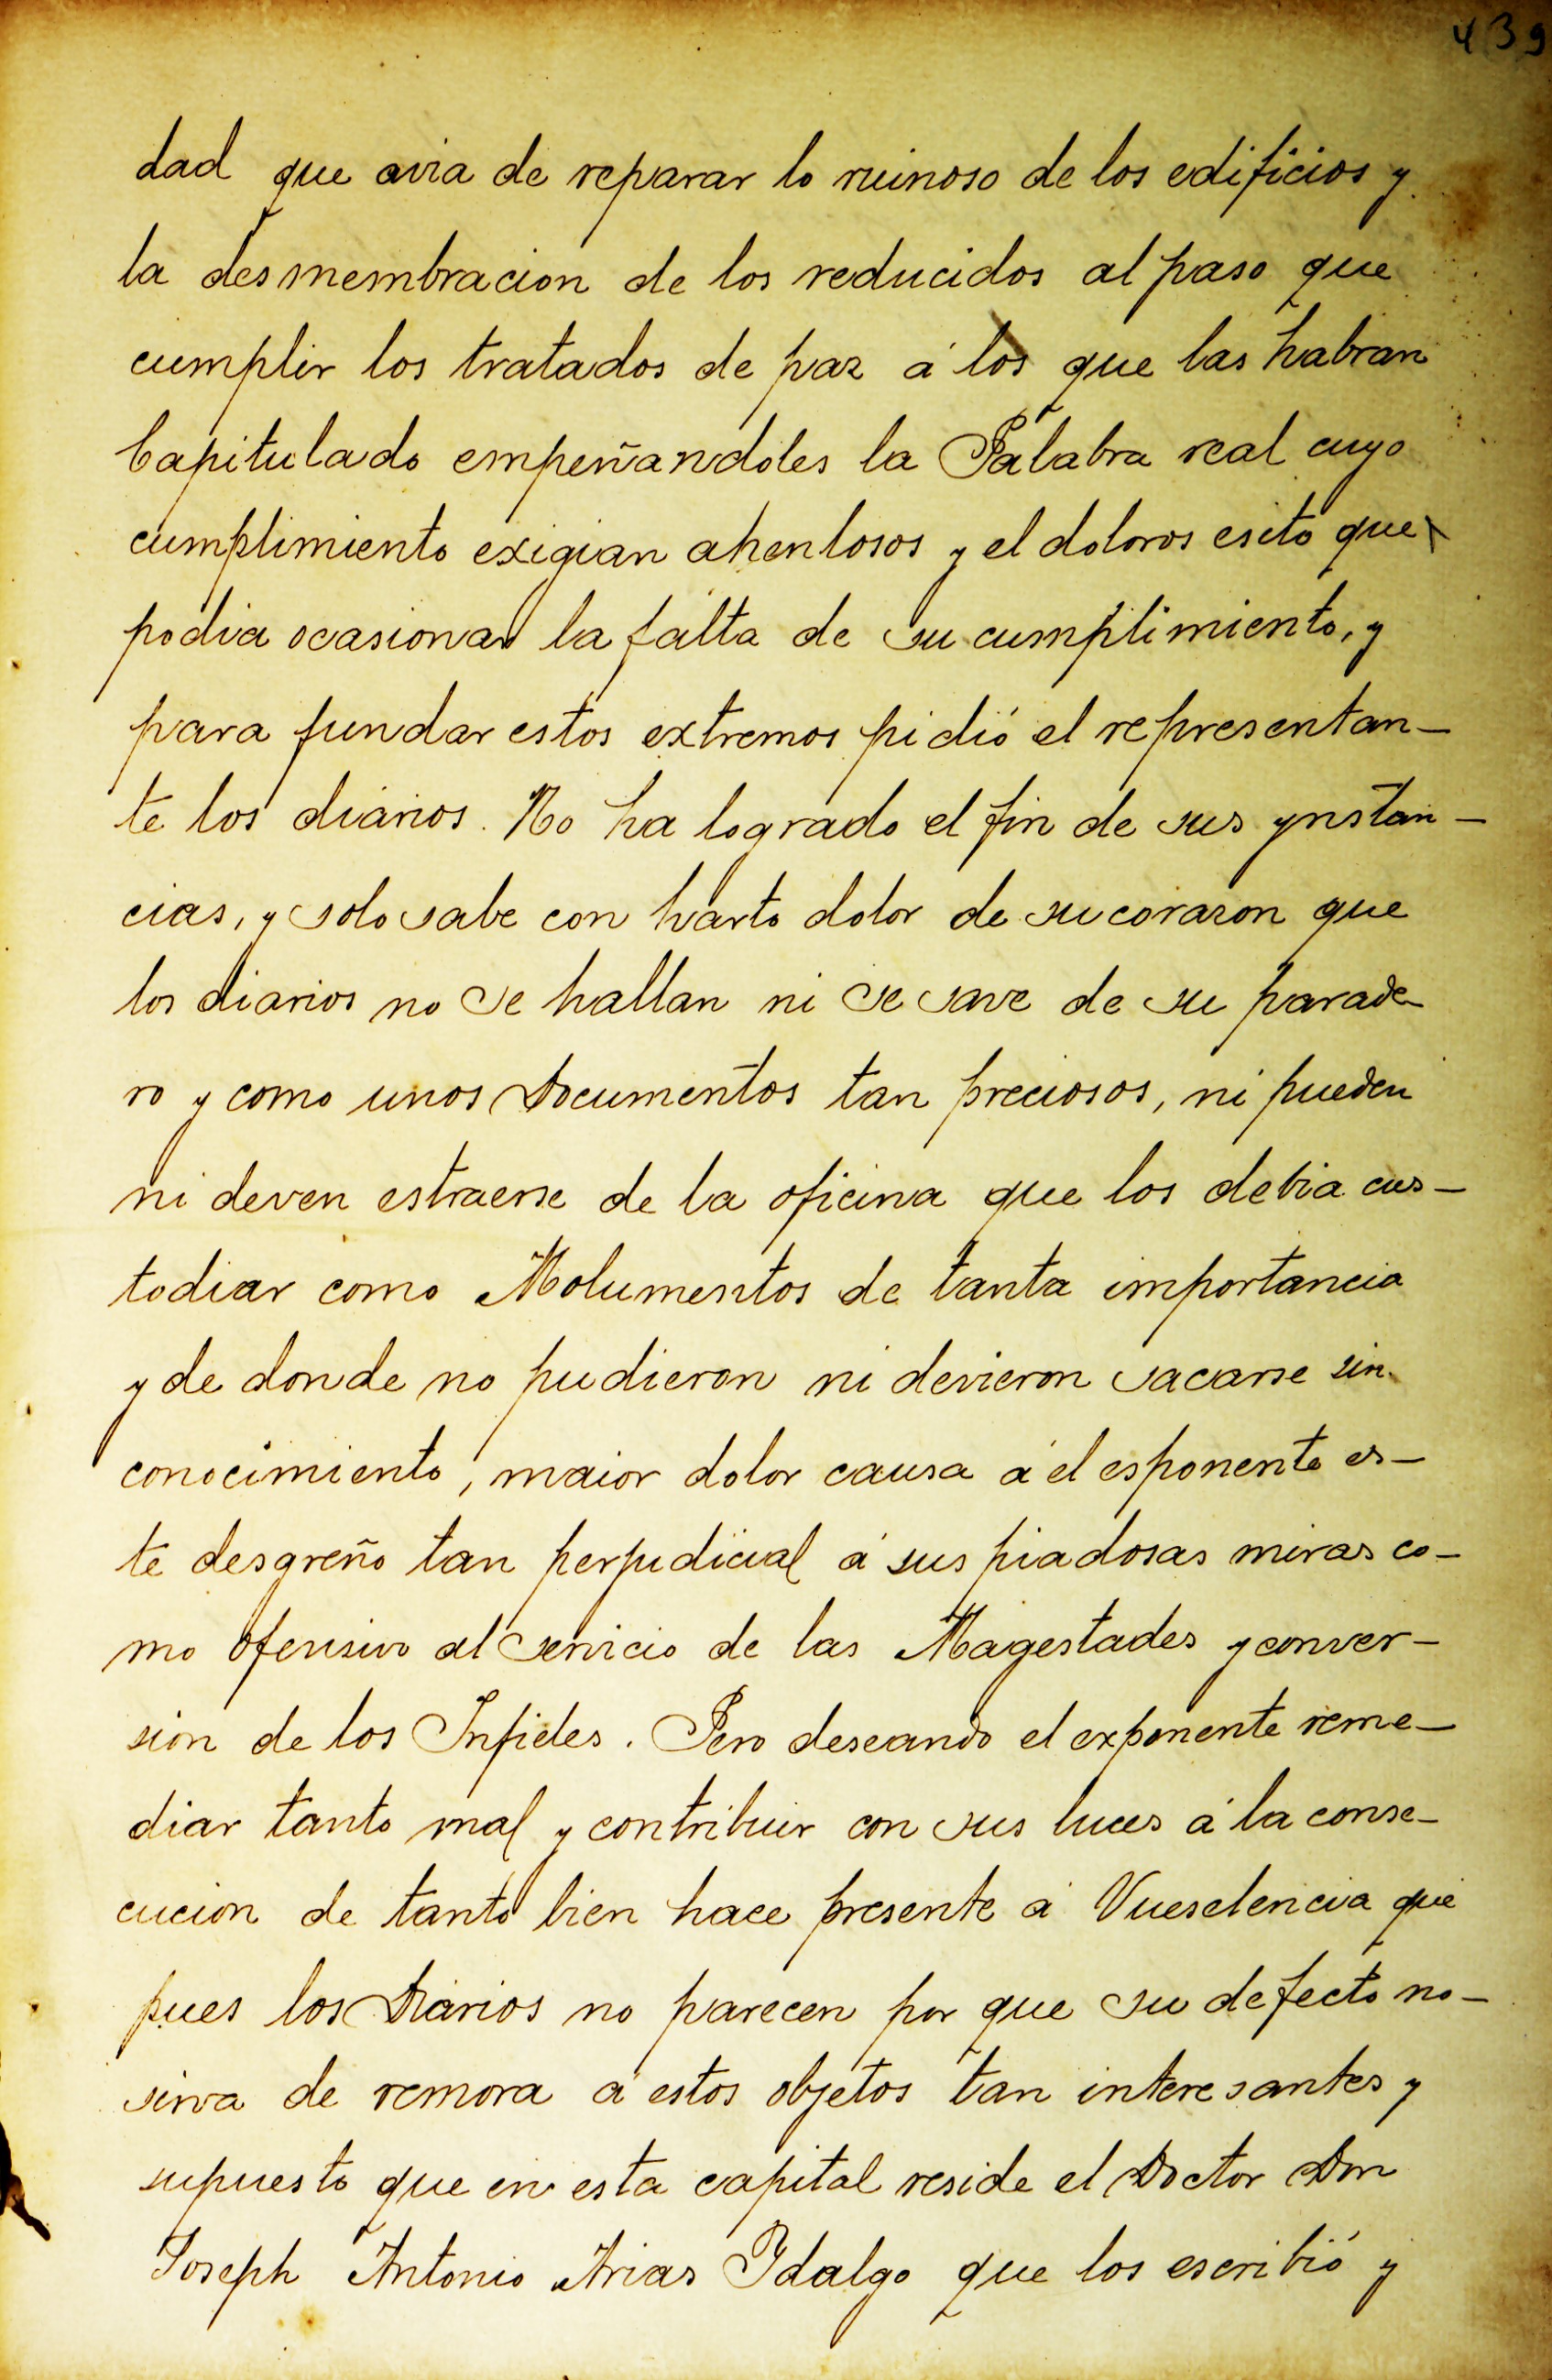 439
dad que avia de reparar lo ruinoso de los edificios y
la desmembracion de los reducidos al paso que
cumplir los tratados de paz á los que las habran
Capitulado empeñandoles la Palabra real cuyo
cumplimiento exigian ahenlosos y el doloros esito que
podia ocasionar la falta de su cumplimiento, y
para fundar estos extremos pidió el representan-
te los diarios. No ha logrado el fin de sus ynstan-
cias, y solo sabe con harto dolor de su corazon que
los diarios no se hallan ni se save de su parade-
ro y como unos Documentos tan preciosos, ni pueden
ni deven estraerse de la oficina que los debia cus-
todiar como Molumentos de tanta importancia
y de donde no pudieron ni devieron sacarse sin
conocimiento, maior dolor causa á el esponente es-
te desgreño tan perjudicial á sus piadosas miras co-
mo ofensivo al servicio de las Magestades y conver-
sion de los Infieles. Pero deseando el exponente reme-
diar tanto mal y contribuir con sus luces á la conse-
cucion de tanto bien hace presente á Vueselencia que
pues los Diarios no parecen por que su defecto no-
sirva de remora á estos objetos tan interesantes y
supuesto que en esta capital reside el Doctor Don
Joseph Antonio Arias Ydalgo que los escribió y